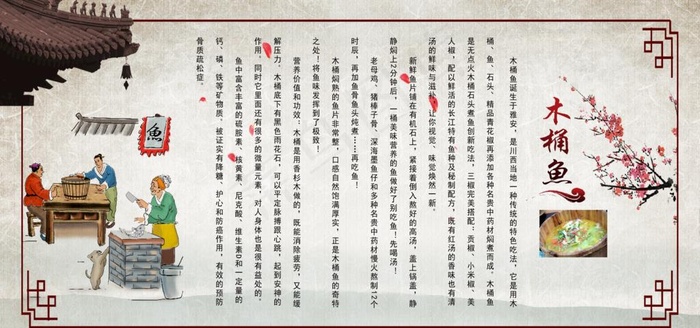 木桶鱼
木桶鱼诞生于雅安，是川西当地一种传统的特色吃法，它是用木
桶、鱼、石头、精品青花椒再添加各种名贵中药材焖煮而成。木桶鱼
是无点火木桶石头煮鱼创新吃法，三椒完美搭配：贡椒、小米椒、美
人椒，配以鲜活的长江特有鱼种及秘制配方，既有红汤的香味也有清
汤的鲜味与滋补，让你视觉、味觉焕然一新。
新鲜鱼片铺在有机石上，紧接着倒入熬好的高汤，盖上锅盖，静
静焖上2分钟后，一桶美味营养的鱼做好了别吃鱼！先喝汤！
老母鸡、猪棒子骨、深海墨鱼仔和多种名贵中药材慢火熬制12个
时辰，再加鱼骨鱼头炖煮……再吃鱼！
木桶焖熟的鱼片非常整，口感自然饱满厚实，正是木桶鱼的奇特
之处！将鱼味发挥到了极致！
营养价值和功效：木桶是用香杉木做的，既能消除疲劳，又能缓
解压力。木桶底下有黑色雨花石，可以平定脉搏跟心跳，起到安神的
作用。同时它里面还有很多的微量元素，对人身体也是很有益处的。
鱼中富含丰富的硫胺素、核黄素、尼克酸、维生素D和一定量的
钙、磷、铁等矿物质，被证实有降糖、护心和防癌作用，有效的预防
骨质疏松症。
魚